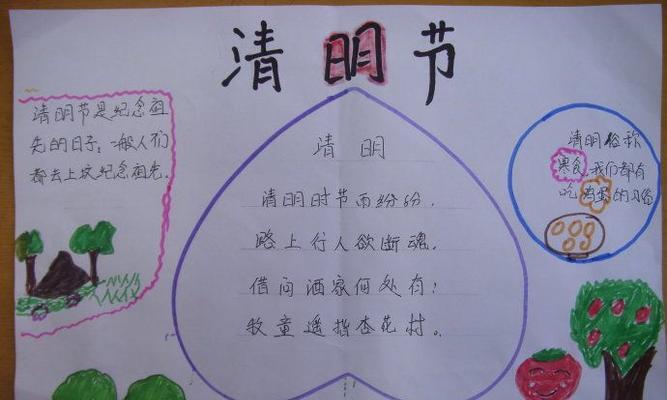 清明节
清明节是纪念祖
先的日子；一般人们
都去上坟纪念祖先。
清明
清明时节雨纷纷，
路上行人欲断魂。
借问酒家何处有！
牧童遥指杏花村。
清明俗称
寒食，我们都有
吃鸡蛋的习俗